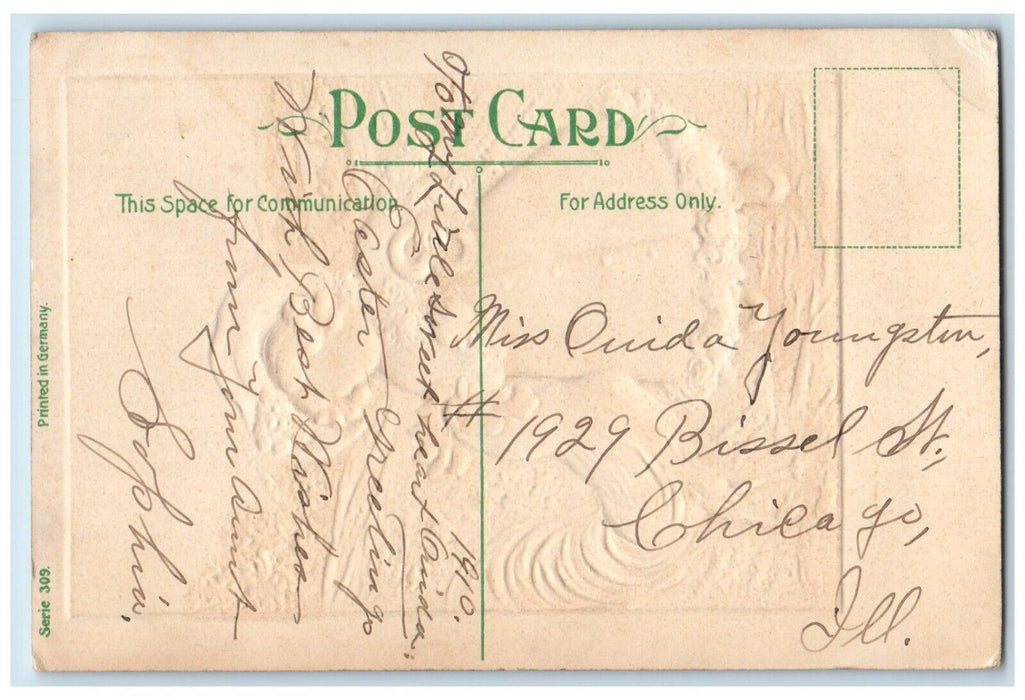 POST CARD
This Space for Communication
For Address Only.
1910.
Little Sweet heart Ouida.
Easter Greeting
With Best Wishes
from Your Aunt
Sophia.
Miss Ouida Youngston,
# 1929 Bissel St.,
Chicago,
Ill.
Printed in Germany.
Serie 309.